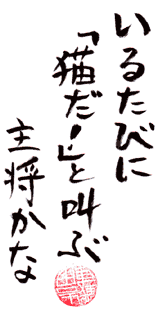 いるたびに
「猫だ!」と叫ぶ
主将かな